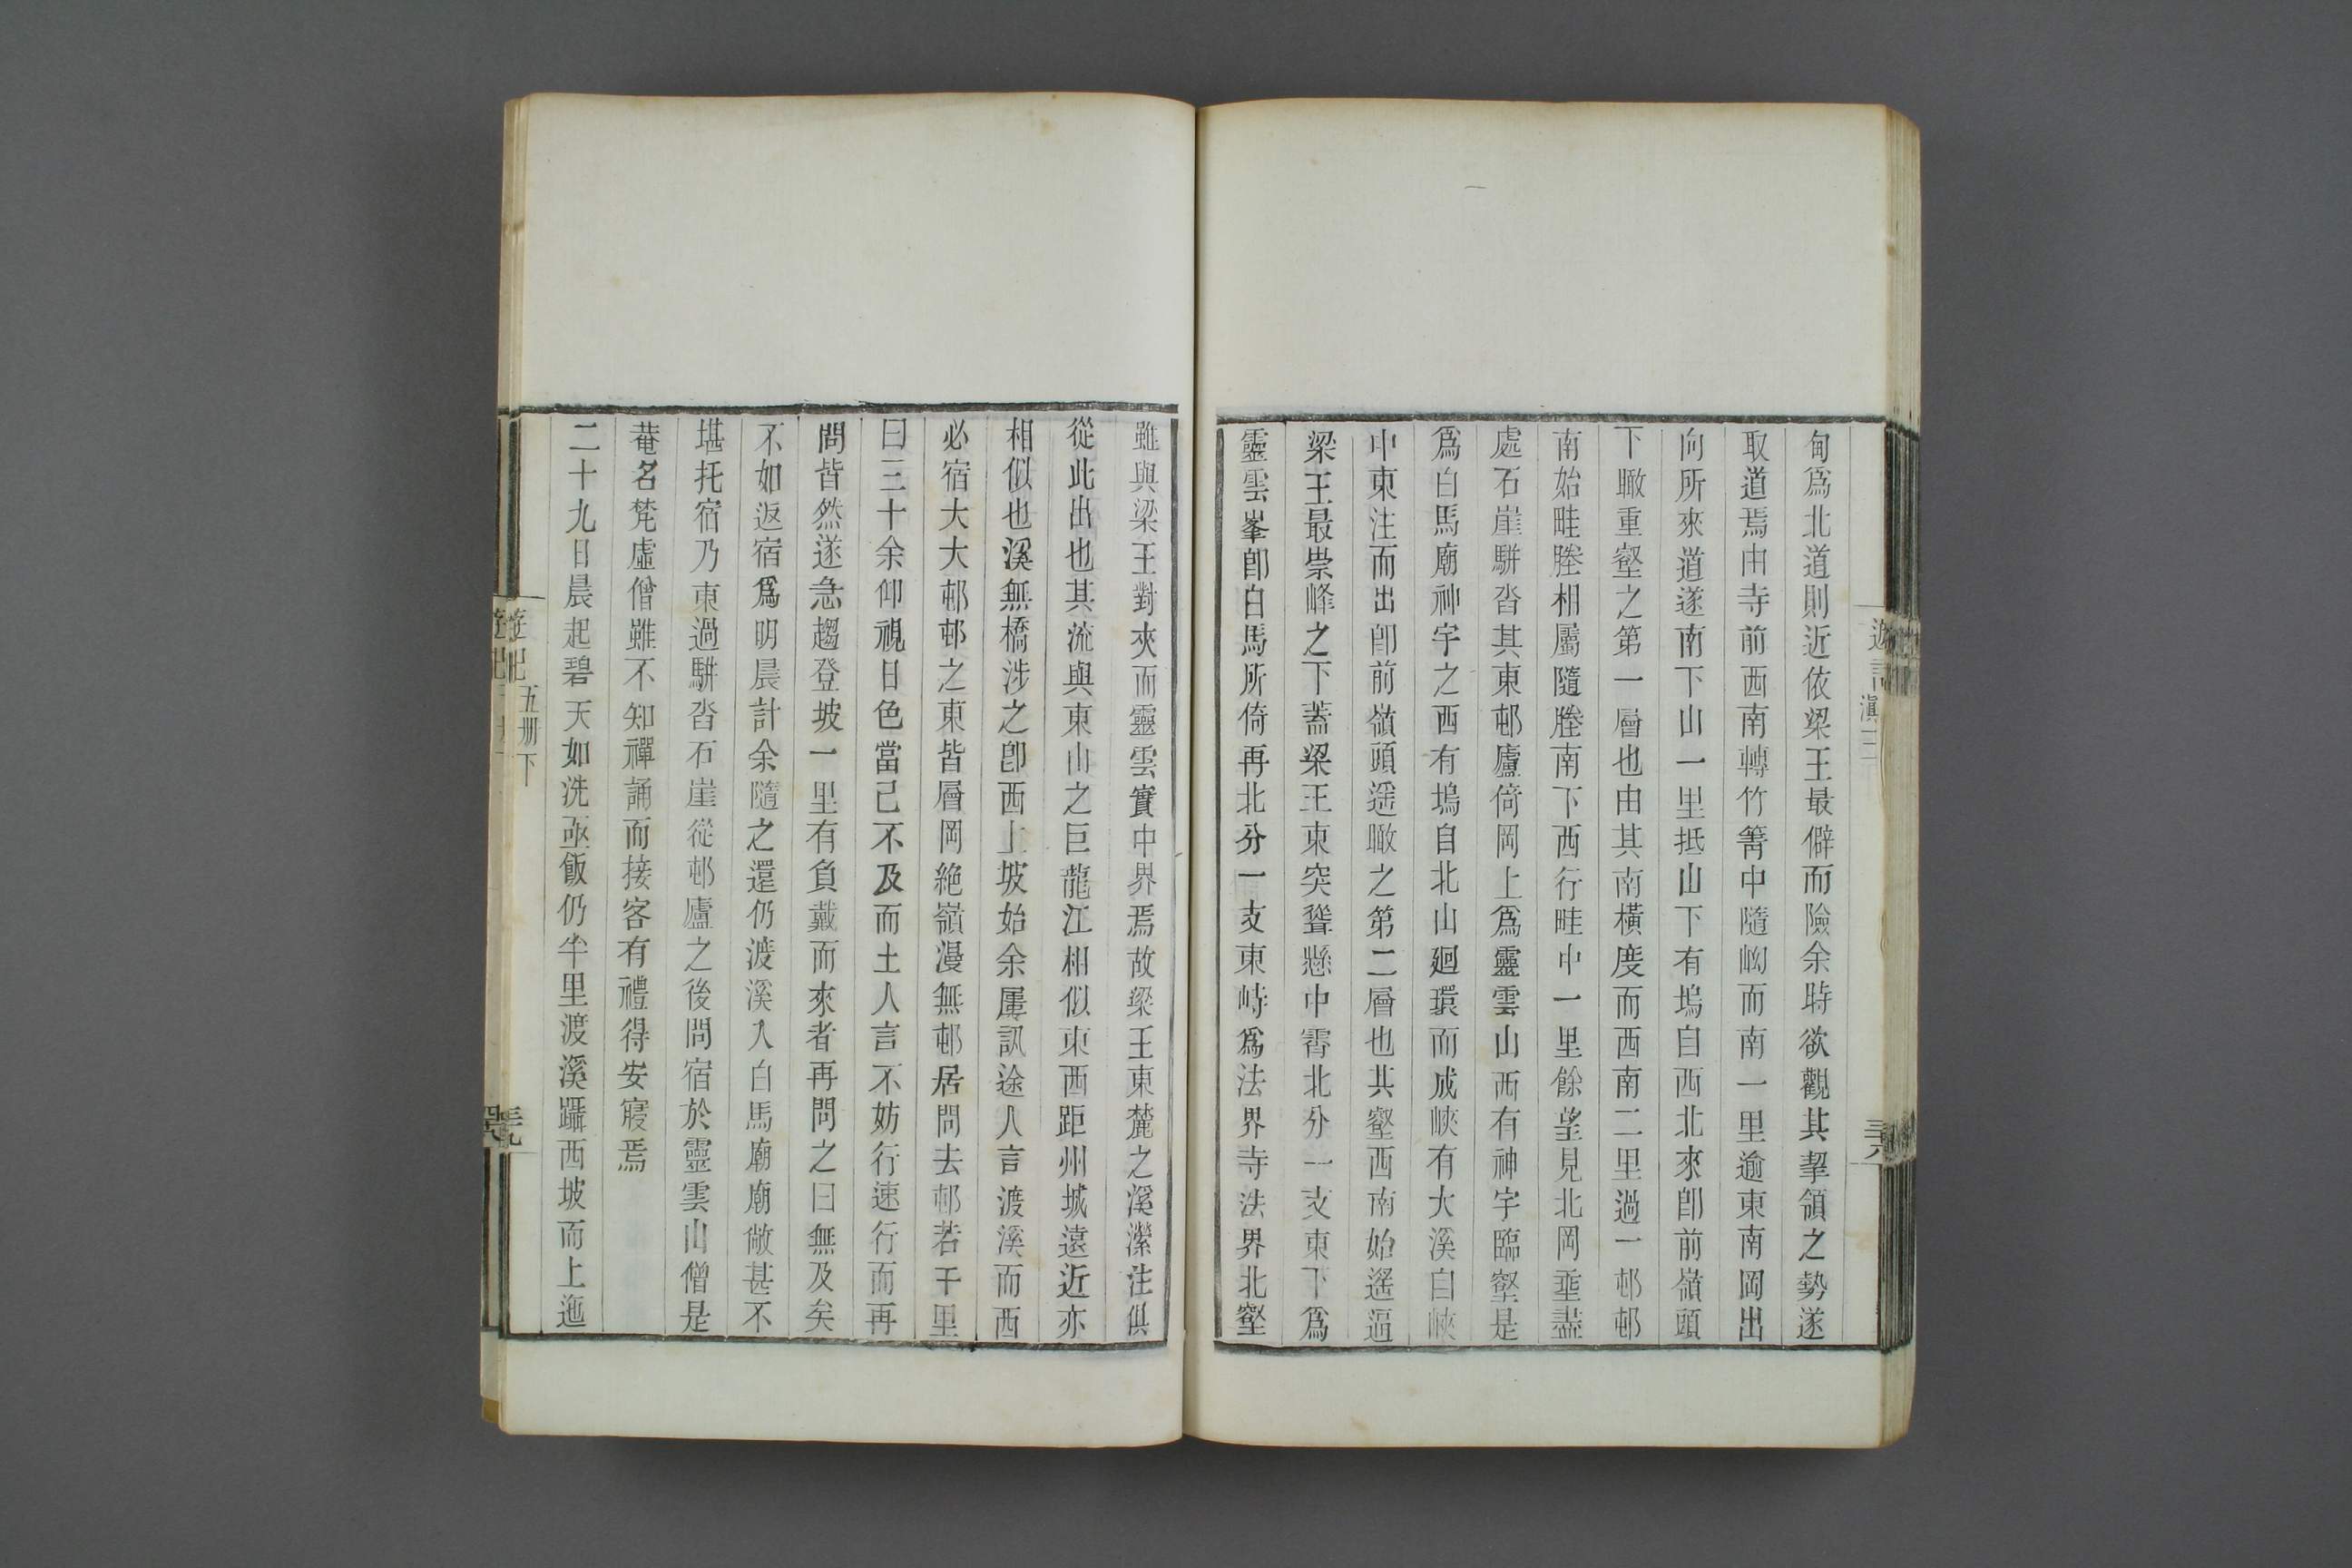 甸爲北道則近依梁王最僻而險余時欲觀其挈領之勢遂
取道焉由寺前西南轉竹箐中隨坳而南一里逾東南岡出
向所來道遂南下山一里抵山下有塢自西北來卽前嶺頭
下瞰重壑之第一層也由其南橫度而西南二里過一邨邨
南始畦塍相屬隨塍南下西行畦中一里餘望見北岡垂盡
處石崖駢沓其東邨廬倚岡上爲靈雲山西有神宇臨壑是
爲白馬廟神宇之西有塢自北山廻環而成峽有大溪自峽
中東注而出卽前嶺頭遥瞰之第二層也其壑西南始遥逼
梁王最崇峰之下蓋梁王東突聳懸中霄北分一支東下爲
靈雲峯卽白馬所倚再北分一支東峙爲法界寺法界北壑
雖與梁王對夾而靈雲實中界焉故梁王東麓之溪瀠注俱
從此出也其流與東山之巨龍江相似東西距州城遠近亦
相似也溪無橋涉之卽西上坡始余屢訊途人言渡溪而西
必宿大大邨邨之東皆層岡絶嶺漫無邨居問去邨若干里
曰三十余仰視日色當已不及而土人言不妨行速行而再
問皆然遂急趨登坡一里有負戴而來者再問之曰無及矣
不如返宿爲明晨計余隨之還仍渡溪入白馬廟廟敞甚不
堪托宿乃東過駢沓石崖從邨廬之後問宿於靈雲山僧是
菴名梵虛僧雖不知禪誦而接客有禮得安寢焉
二十九日晨起碧天如洗亟飯仍半里渡溪躡西坡而上迤
遊記
五册下